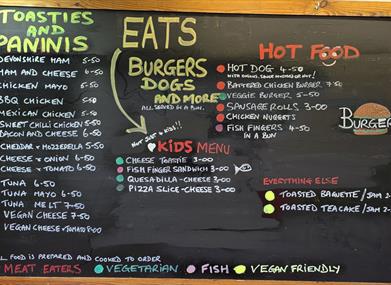 TOASTIES
AND
PANINIS
DEVONSHIRE HAM 5-50
HAM AND CHEESE 6-50
CHICKEN MAYO 5-50
BBQ CHICKEN 5-50
MEXICAN CHICKEN 5-50
SWEET CHILLI CHICKEN 5-50
BACON AND CHEESE 6-50
CHEDDAR & MOZZERELLA 5-50
CHEESE & ONION 6-00
CHEESE & TOMATO 6-50
TUNA 6-50
TUNA MAYO 6-50
TUNA MELT 7-50
VEGAN CHEESE 7-50
VEGAN CHEESE & TOMATO
EATS
BURGERS
DOGS
AND MORE
ALL SERVED IN A BUN.
NOT JUST 4 KIDS!!
KIDS MENU
CHEESE TOASTIE 3-00
FISH FINGER SANDWICH 3-00
QUESADILLA-CHEESE 3-00
PIZZA SLICE-CHEESE 3-00
HOT FOOD
HOT DOG 4-50
WITH ONIONS, SAUCE MUSTARD OR NOT!
BATTERED CHICKEN BURGER 7-50
VEGGIE BURGER 5-50
SAUSAGE ROLLS, 3-00
CHICKEN NUGGETS
FISH FINGERS 4-50
IN A BUN
BURGER
EVERYTHING ELSE
TOASTED BAGUETTE/JAM
TOASTED TEACAKE/JAM
ALL FOOD IS PREPARED AND COOKED TO ORDER
MEAT EATERS VEGETARIAN FISH VEGAN FRIENDLY